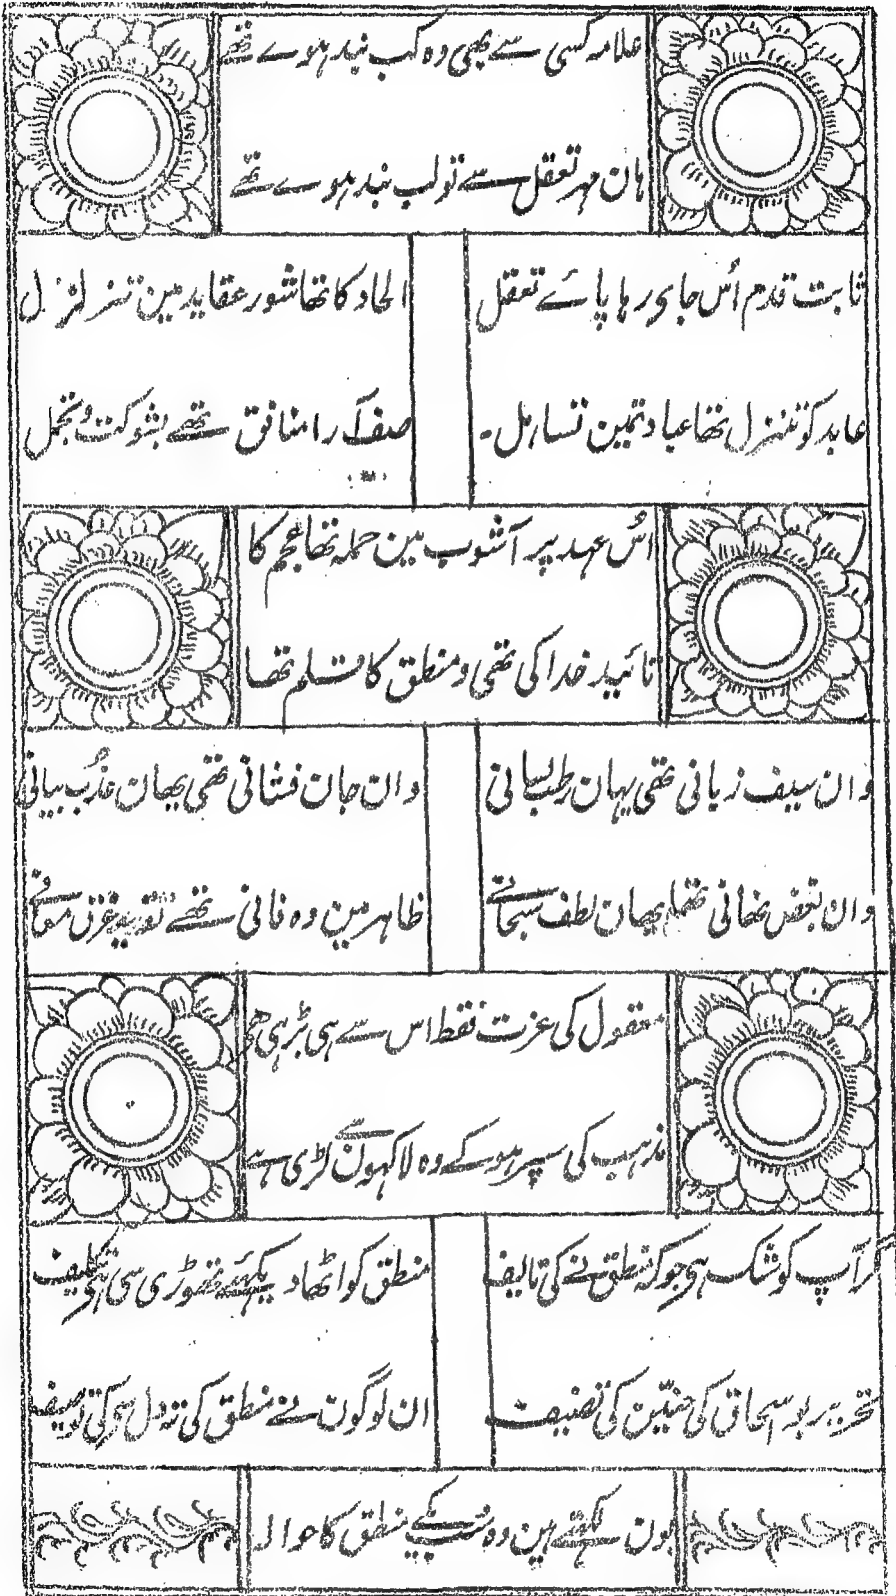 علامہ کسی سے بھی وہ کب بند ہوے تھے
ہان مہر تعقل سے تو لب بند ہوے تھے
ثابت قدم اُس جاے رہا پاے تعقل
الحاد کا تھا شور عقاید مین تزلزل
عابد کو تنزل تھا عبادتمین تساہل
صف آرا منافق تھے بشوکت و تجمل
اُس عہد پر آشوب مین حملہ تھا عجم کا
تائید خدا کی تھی و منطق کا قلم تھا
وان سیف زبانی تھی یہان رطب لسانی
وان جان فشانی تھی یھان عذب بیانی
وان بعض نھانی تھا یھان لطف سبحانے
ظاہر مین وہ فانی تھے
معقول کی عزت فقط اس سے ہی بڑہی ہے
مذہب کی سپر ہو کے وہ لاکہون سے لڑی ہے
گر آپ کو شک ہی جو کہ منطق نے کی تالیف
منطق کو اٹھا دیکہئے تھوڑی سی ہی تکلیف
بو اسحاق کی حنین کی تصنیف
ان لوگون نے منطق کی تہ دل سے کی توصیف
یون لکہتے ہین وہ منطق کا حوالہ